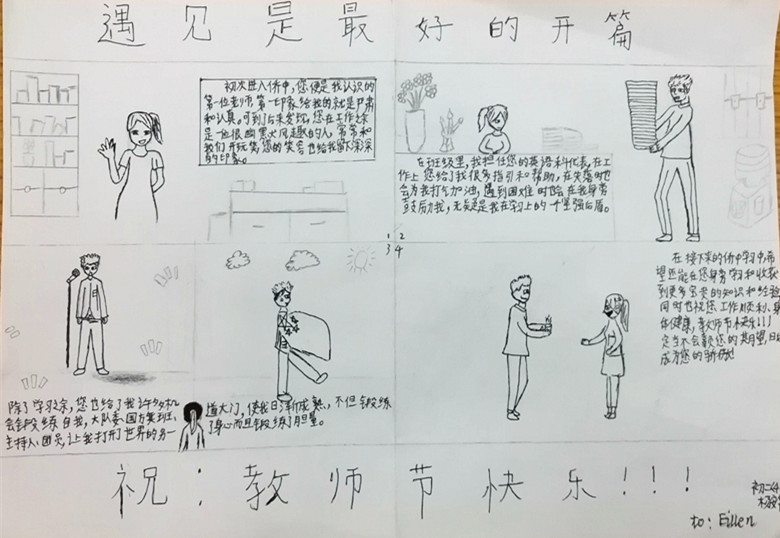 遇见是最好的开篇
初次进入侨中,您便是我认识的
第一位老师第一印象给我的就是严肃
和认真。可到后来发现,您在工作之余
是一位很幽默大风趣的人,常常和
我们开玩笑,您的笑容也给我留下深深
的印象。
在班级里,我担任您的英语科代表,在工
作上您给了我很多指引和帮助,在失落时也
会为我打气加油,遇到困难时也会在我身旁
鼓励我,无疑是我在学习上的一个坚强后盾。
1 2
3 4
除了学习之余,您也给了我许多机
会去锻练自我,大队委、国方寨班、
主持人、团员,让我打开了世界的另一
道大门,使我日了新成熟,不但锻练
了身心而且锻练了胆量。
在接下来的侨中学习中,希
望还能在您身旁学习和收获
到更多宝贵的知识和经验
同时也祝您工作顺利,身
体健康,教师节快乐!!!
定当不会辜负您的期望,日
成为您的骄傲!
祝:教师节快乐!!!
to: Eillen